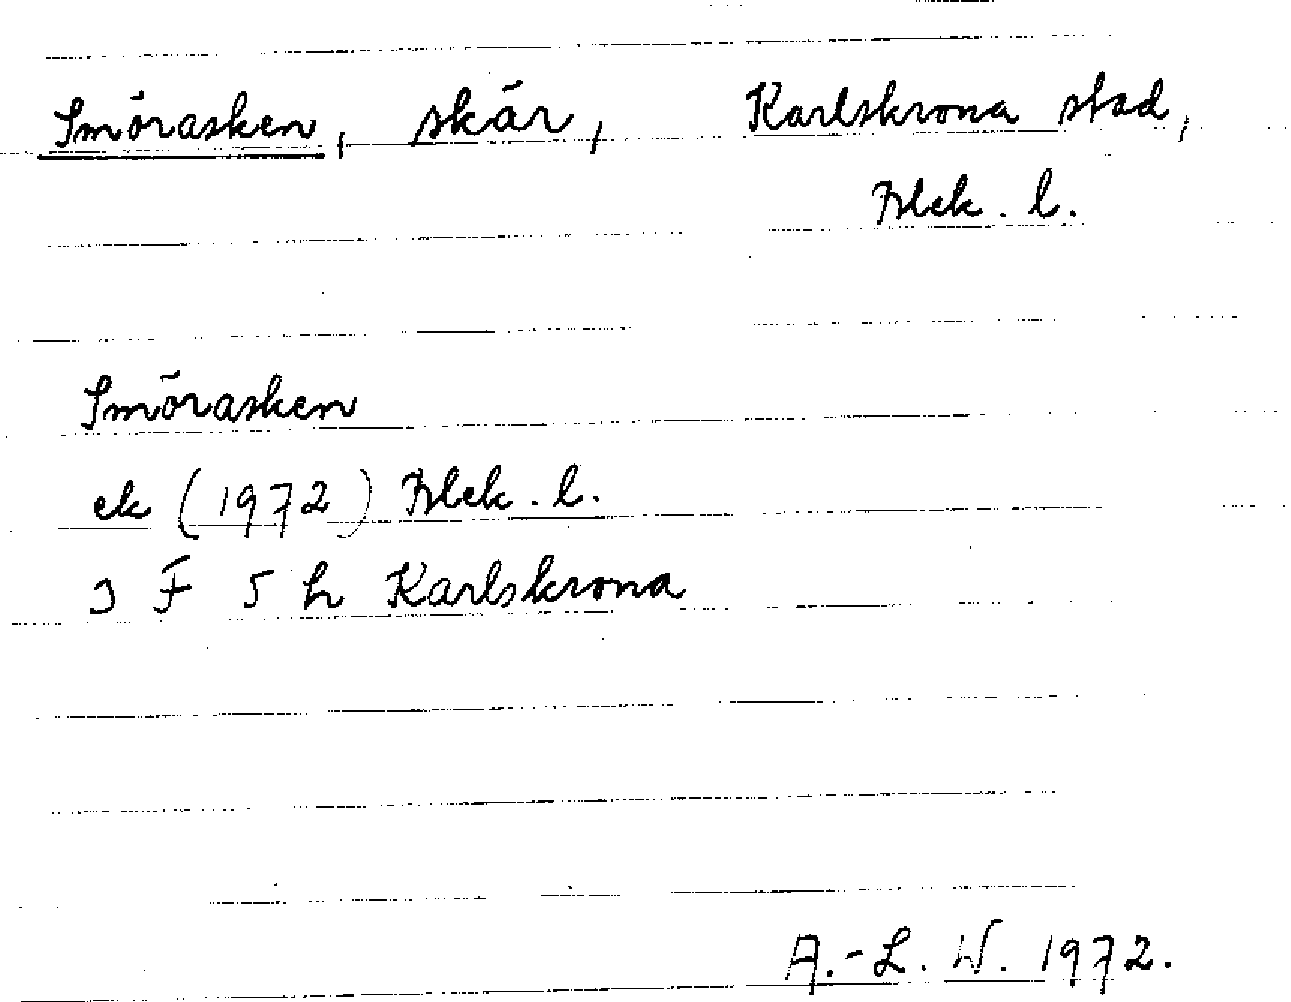 Smörasken, skär, Karlskrona stad,
Blek. l.
Smörasken
ek (1972) Blek. l.
3 F 5 h Karlskrona
A.-L. W. 1972.